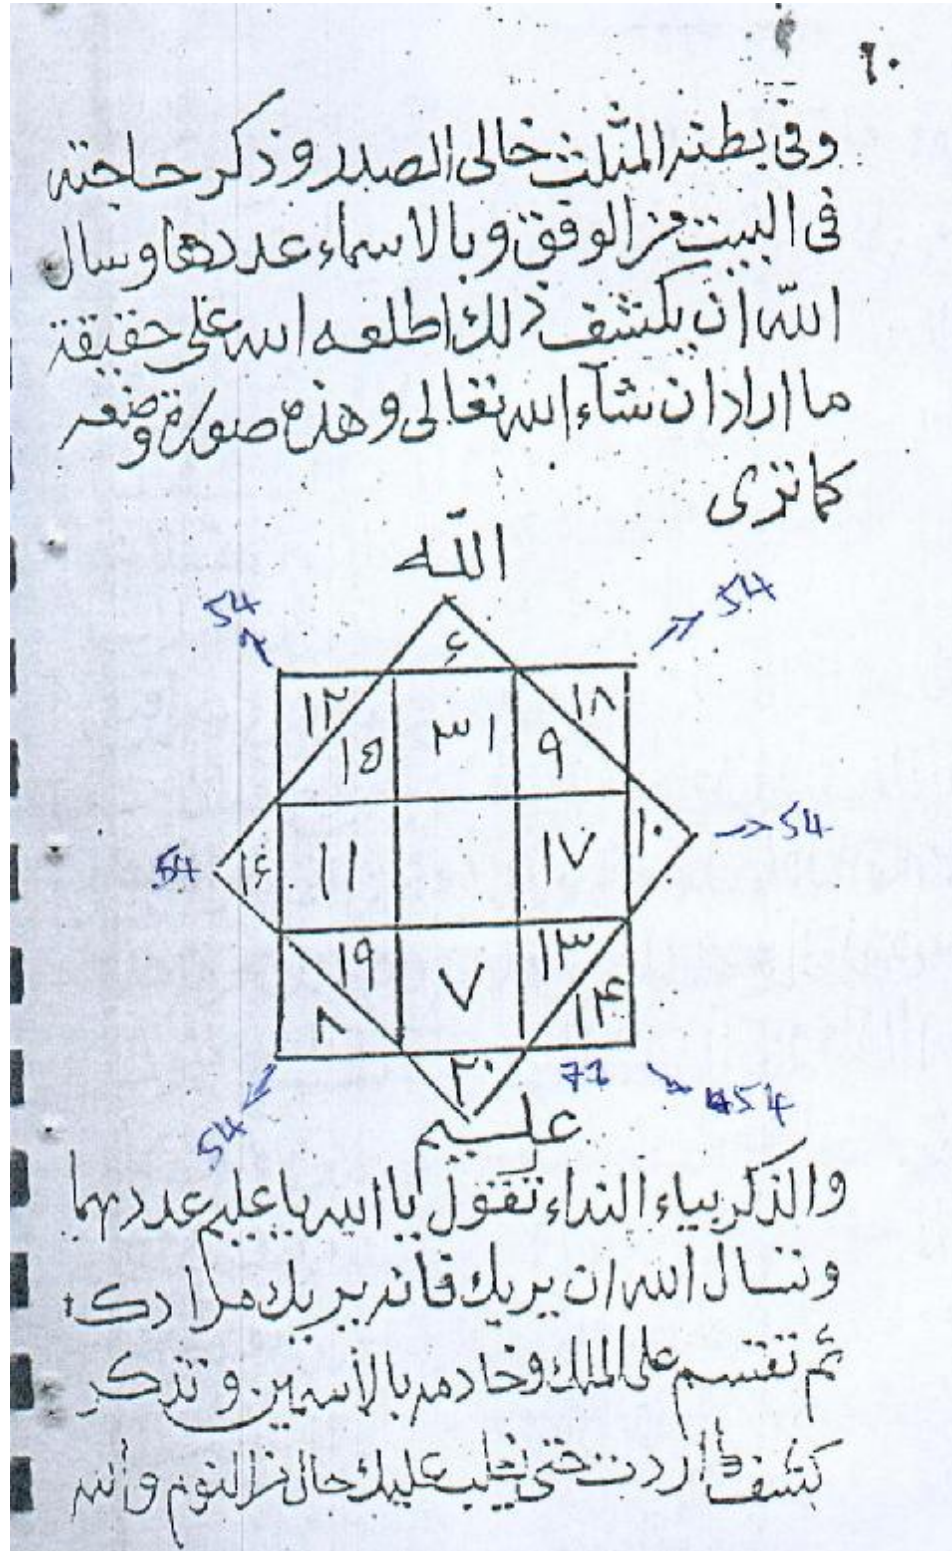 ١٠
وفى بطنه المثلث خالى الصدر وذكر حاجته
فى البيت من الوفق وبالاسماء عددها وسال
الله ان يكشف ذلك اطلعه الله على حقيقة
ما اراد ان شآء الله تعالى وهذه صورة وضعه
كما ترى
الله
54 54
٤
١٢ ١٨
١٥ ٣١ ٩
54 ١٦ ١١ ١٧ ١٠ 54
١٩ ٧ ١٣
٨ ١٤
٢٠
54 54
عليم
والذكر بياء النداء تقول يا الله يا عليم عددهما
وتسال الله ان يريك فانه يريك مرادك
ثم تقسم على الملك وخادمه بالأسمين وتذكر
كشف ما اردت حتى يغلب عليك حال من النوم والله